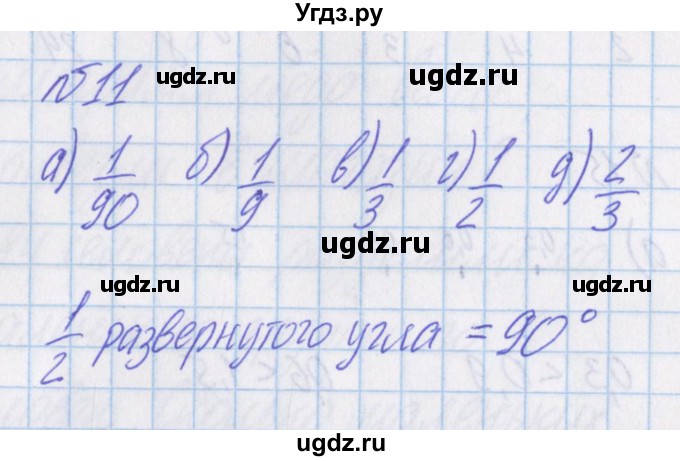 Угдз.ру
№11
ugdz.ru ugdz.ru
а) 1/90 б) 1/9 в) 1/3 г) 1/2 д) 2/3
ugdz.ru
ugdz.ru ugdz.ru
1/2 развернутого угла = 90°
ugdz.ru ugdz.ru
ugdz.ru